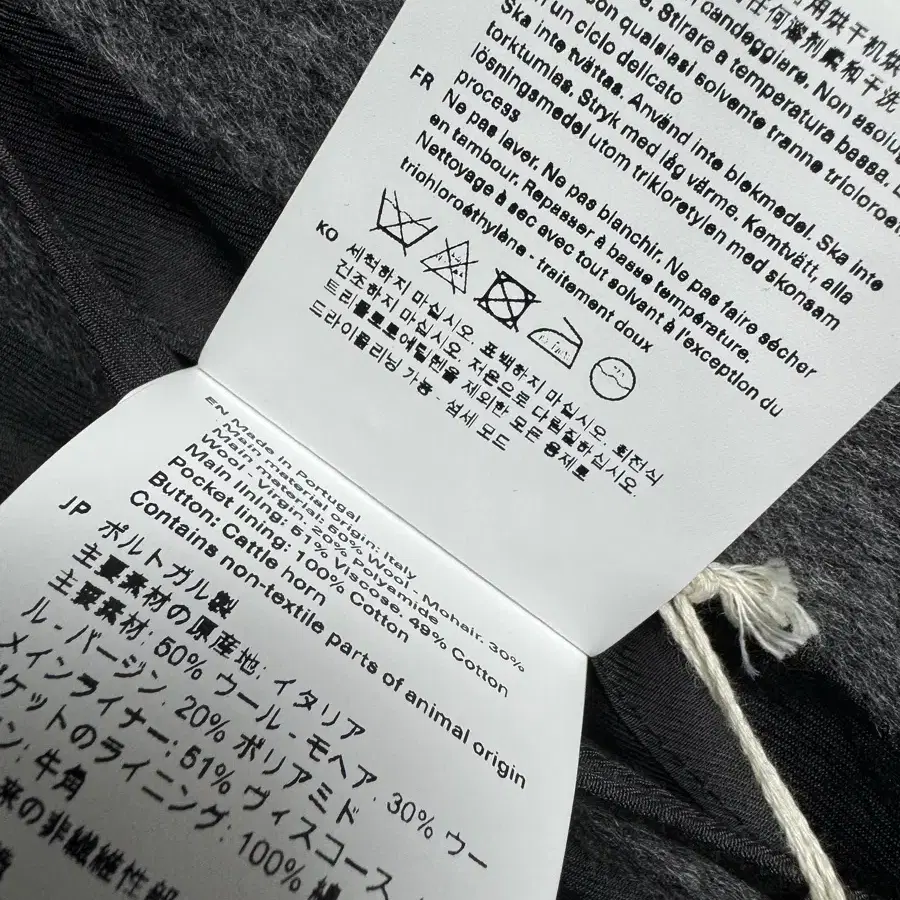 用烘干机烘
任何溶剂柔和干洗
candeggiare. Non asciug
Stirare a temperatura bassa.
con qualsiasi solvente tranne tricloroe
un ciclo delicato
Ska inte tvättas. Använd inte blekmedel. Ska inte
torktumlas. Stryk med låg värme. Kemtvätt, alla
lösningsmedel utom trikloretylen med skonsam
process
FR Ne pas laver. Ne pas blanchir. Ne pas faire sécher
en tambour. Repasser à basse température.
Nettoyage à sec avec tout solvant à l'exception du
trichloroéthylène - traitement doux
KO 세척하지 마십시오. 표백하지 마십시오. 회전식
건조하지 마십시오. 저온으로 다림질하십시오.
트리클로로에틸렌을 제외한 모든 용제로
드라이클리닝 가능 - 섬세 모드
EN Made in Portugal
Main material origin: Italy
Main material: 50% Wool - Mohair. 30%
Wool - Virgin. 20% Polyamide
Main lining: 51% Viscose, 49% Cotton
Pocket lining: 100% Cotton
Button: Cattle horn
Contains non-textile parts of animal origin
JP ポルトガル製
主要素材の原産地: イタリア
主要素材: 50% ウール - モヘア. 30% ウー
ル - バージン. 20% ポリアミド
メインライナー: 51% ヴィスコース
ケットのライニング: 100% 綿
ン: 牛角
来の非繊維性部